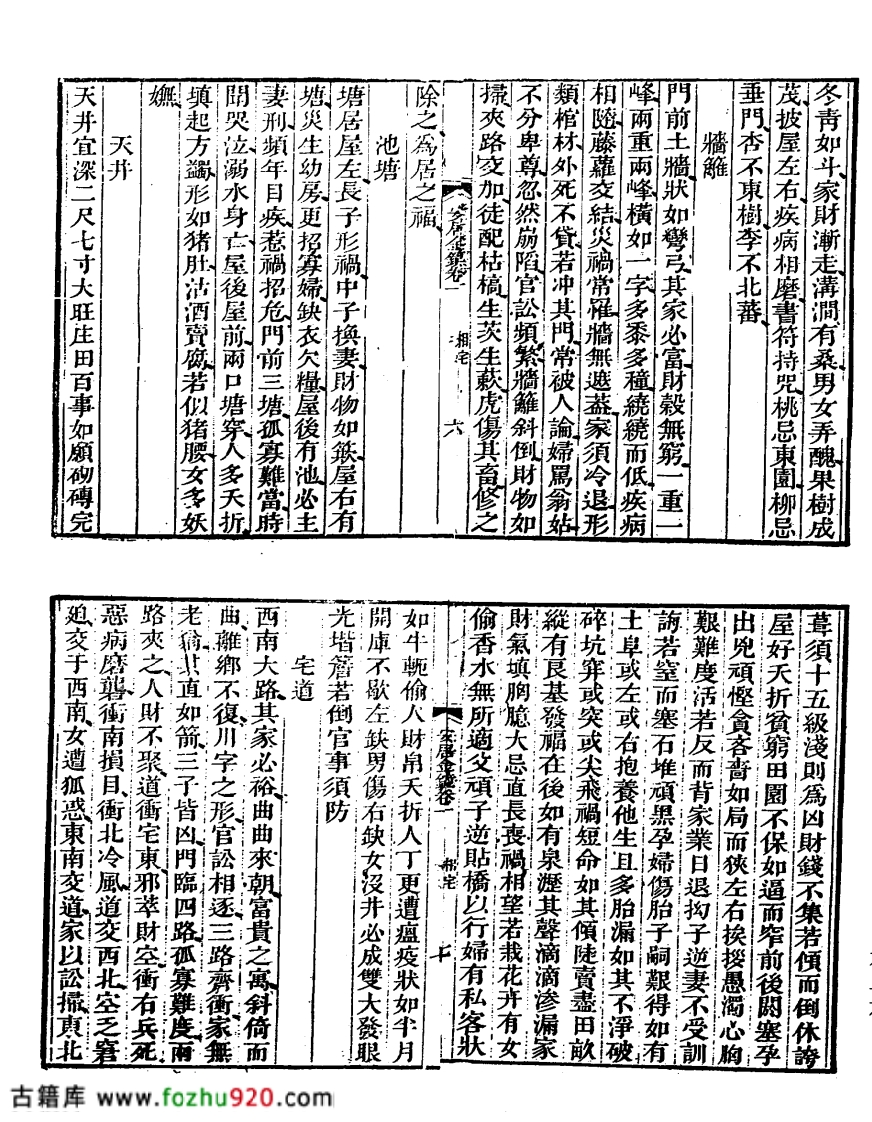 冬青如斗家財漸走溝澗有桑男女弄醜果樹成
茂披屋左右疾病相磨書符持咒桃忌東園柳忌
垂門杏不東樹李不北蕃
牆籬
門前土牆狀如彎弓其家必富財穀無窮一重一
峰兩重兩峰橫如一字多黍多種繞繞而低疾病
相隨藤蘿交結災禍常罹牆無遮蓋家須冷退形
類棺材外死不貸若冲其門常被人論婦罵翁姑
不分卑尊忽然崩陷官訟頻繁牆籬斜倒財物如
掃夾路交加徒配枯槁生茨生蓛虎傷其畜修之
安居金鏡卷一 相宅 六
除之為居之福
池塘
塘居屋左長子形禍中子換妻財物如鍁屋右有
塘災生幼房更招寡婦缺衣欠糧屋後有池必主
妻刑頻年目疾惹禍招危門前三塘孤寡難當時
聞哭泣溺水身亡屋後屋前兩口塘穿人多夭折
填起方蠲形如猪肚沽酒賣腐若似猪腰女多妖
嫵
天井
天井宜深二尺七寸大旺庄田百事如願砌磚完
葺須十五級淺則為凶財錢不集若傾而倒休誇
屋好夭折貧窮田園不保如逼而窄前後閼塞孕
出兇頑慳貪吝嗇如局而狹左右挨拶愚濁心胸
艱難度活若反而背家業日退拗子逆妻不受訓
誨若窒而塞石堆頑黑孕婦傷胎子嗣艱得如有
土阜或左或右抱養他生且多胎漏如其不淨破
碎坑穽或突或尖飛禍短命如其傾陡賣盡田畝
縱有艮基發福在後如有泉瀝其聲滴滴滲漏家
財氣填胸臆大忌直長喪禍相望若栽花卉有女
偷香水無所適父頑子逆貼橋以行婦有私客狀
安居金鏡卷一 相宅 七
如牛軛偷人財帛夭折人丁更遭瘟疫狀如半月
開庫不歇左缺男傷右缺女沒井必成雙大發眼
光堦簷若倒官事須防
宅道
西南大路其家必裕曲曲來朝富貴之寓斜倚而
曲離鄉不復川字之形官訟相逐三路齊衝家無
老翁其直如箭三子皆凶門臨四路孤寡難度兩
路夾之人財不聚道衝宅東邪萃財空衝右兵死
惡病磨礱衝南損目衝北冷風道交西北空乏窘
廹交于西南女遭狐惑東南交道家以訟掃東北
古籍库 www.fozhu920.com